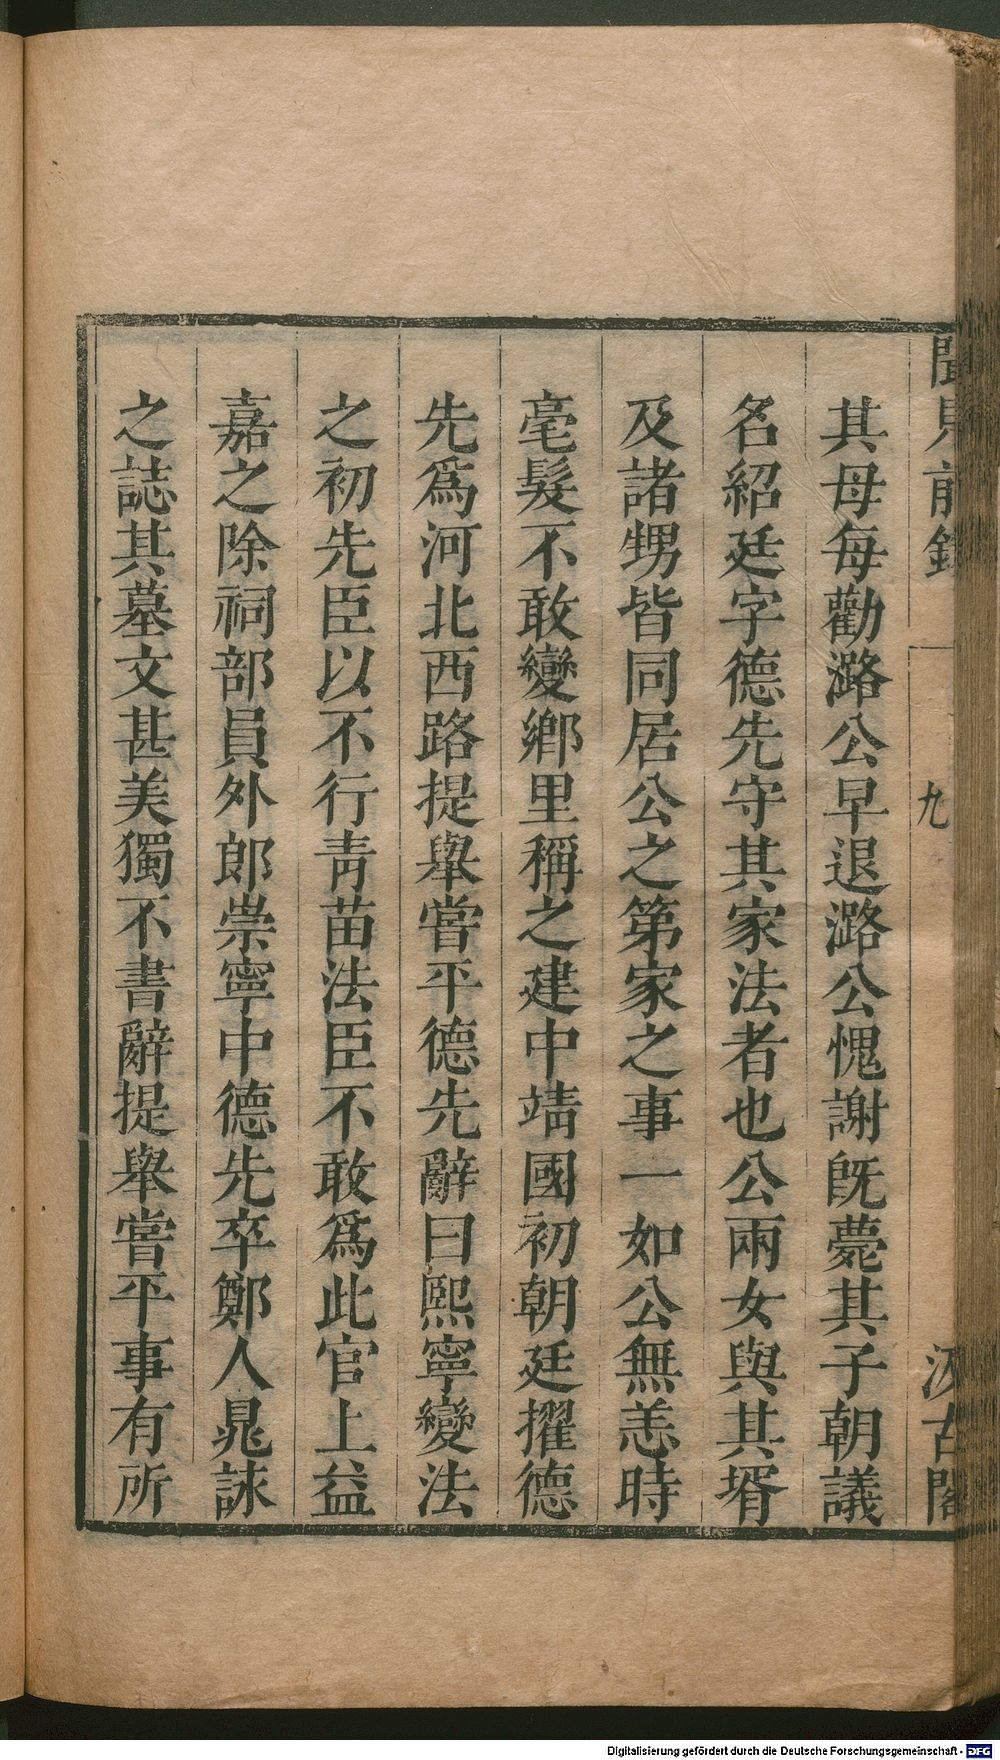 聞見前錄 九 汲古閣
其母每勸潞公早退潞公愧謝旣薨其子朝議
名紹廷字德先守其家法者也公兩女與其壻
及諸甥皆同居公之第家之事一如公無恙時
毫髮不敢變鄉里稱之建中靖國初朝廷擢德
先爲河北西路提舉嘗平德先辭曰熙寧變法
之初先臣以不行青苗法臣不敢爲此官上益
嘉之除祠部員外郎崇寧中德先卒鄭人晁詠
之誌其墓文甚美獨不書辭提舉嘗平事有所
Digitalisierung gefördert durch die Deutsche Forschungsgemeinschaft - DFG